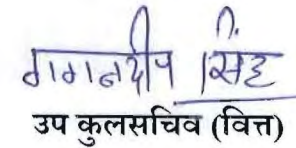 गगनदीप सिंह
उप कुलसचिव (वित्त)